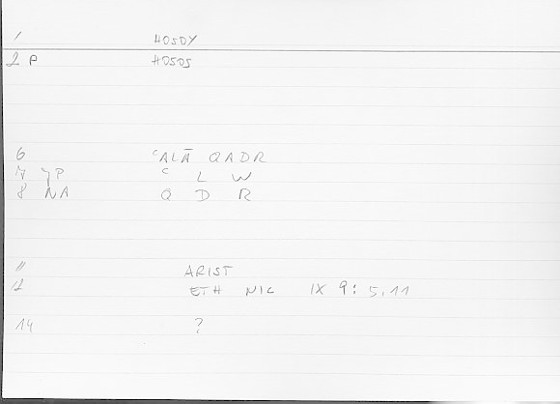 1 HOSOY
2 P HOSOS
6 ʿALĀ QADR
7 YP ʿ L W
8 NA Q D R
11 ARIST
12 ETH NIC IX 9: 5.11
14 ?